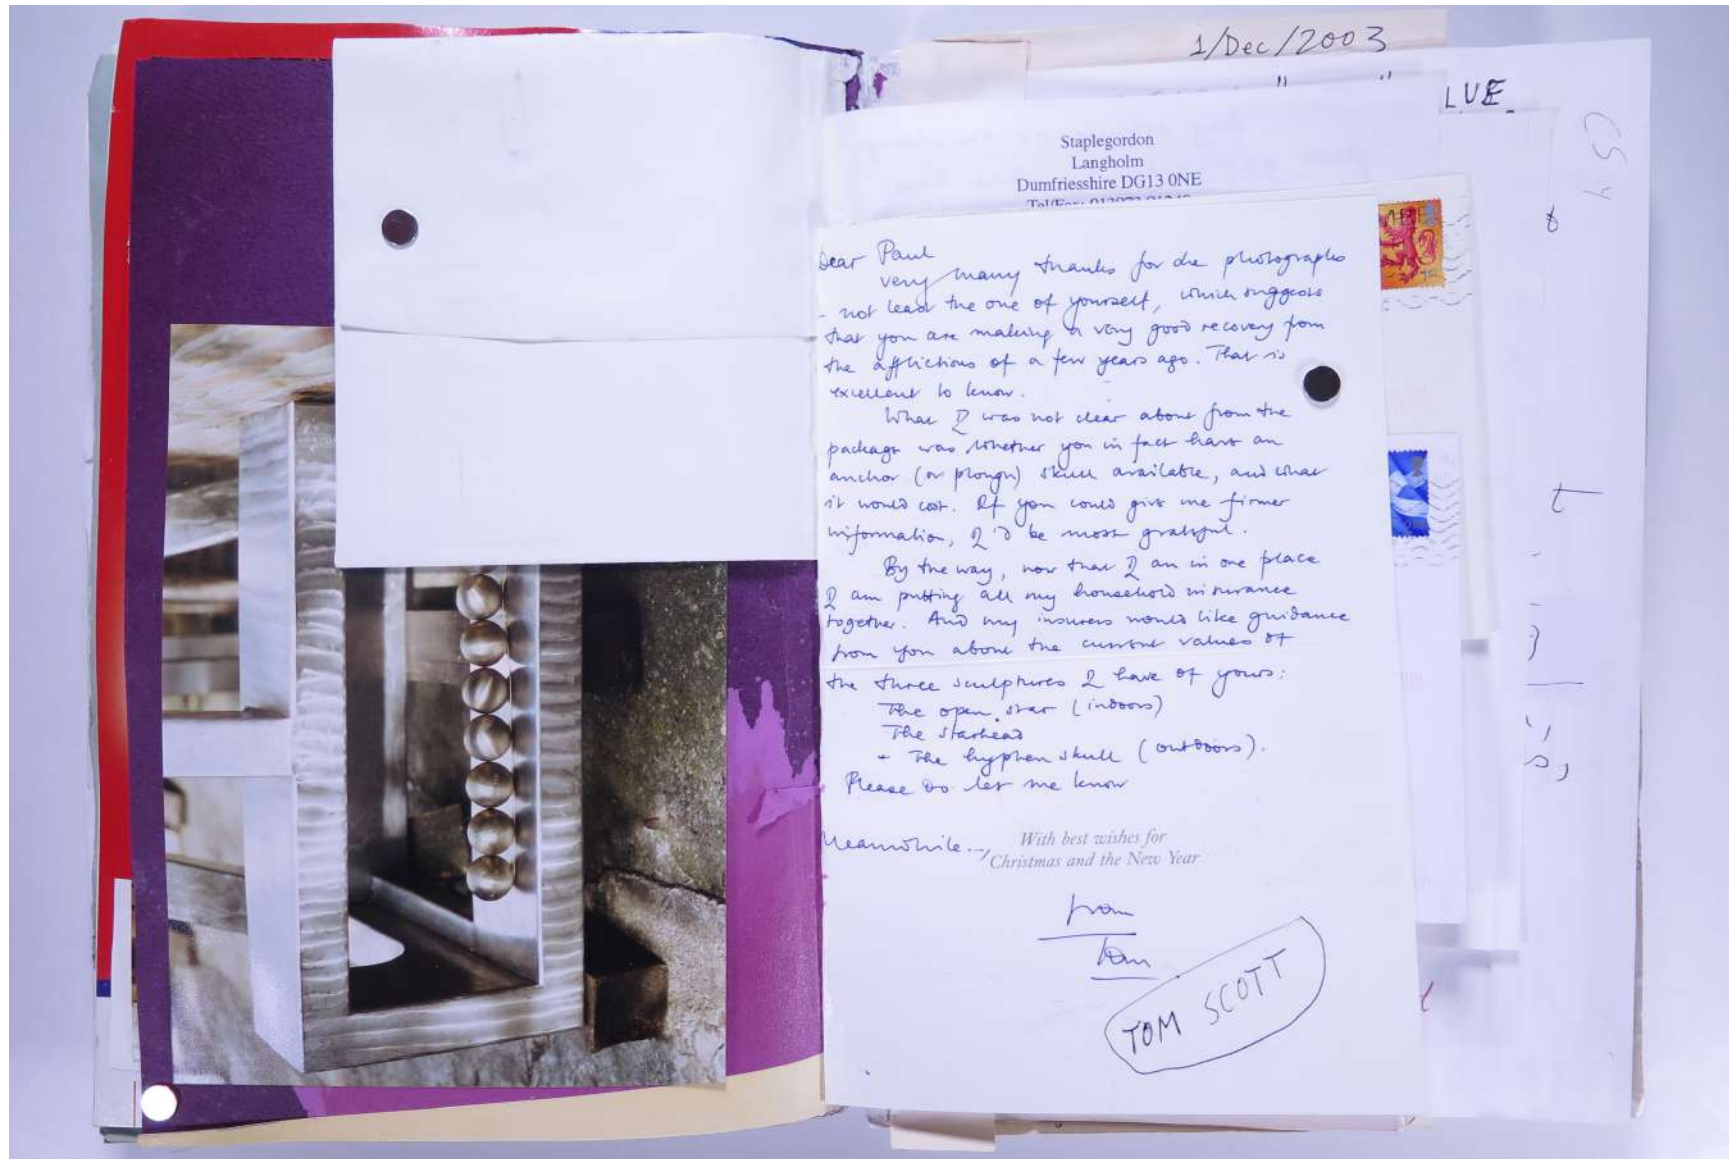 1/Dec/2003
LUE
Staplegordon
Langholm
Dumfriesshire DG13 0NE
Tel/Fax:
Dear Paul
very many thanks for the photographs
- not least the one of yourself, which suggests
that you are making a very good recovery from
the afflictions of a few years ago. That is
excellent to know.
What I was not clear about from the
package was whether you in fact have an
anchor (or plough) skull available, and what
it would cost. If you could give me firmer
information, I'd be most grateful.
By the way, now that I am in one place
I am putting all my household insurance
together. And my insurers would like guidance
from you about the current values of
the three sculptures I have of yours:
The open star (indoors)
The starhead
+ The hyphen skull (outdoors).
Please do let me know
Meanwhile..,
With best wishes for
Christmas and the New Year
from
Tom
TOM SCOTT